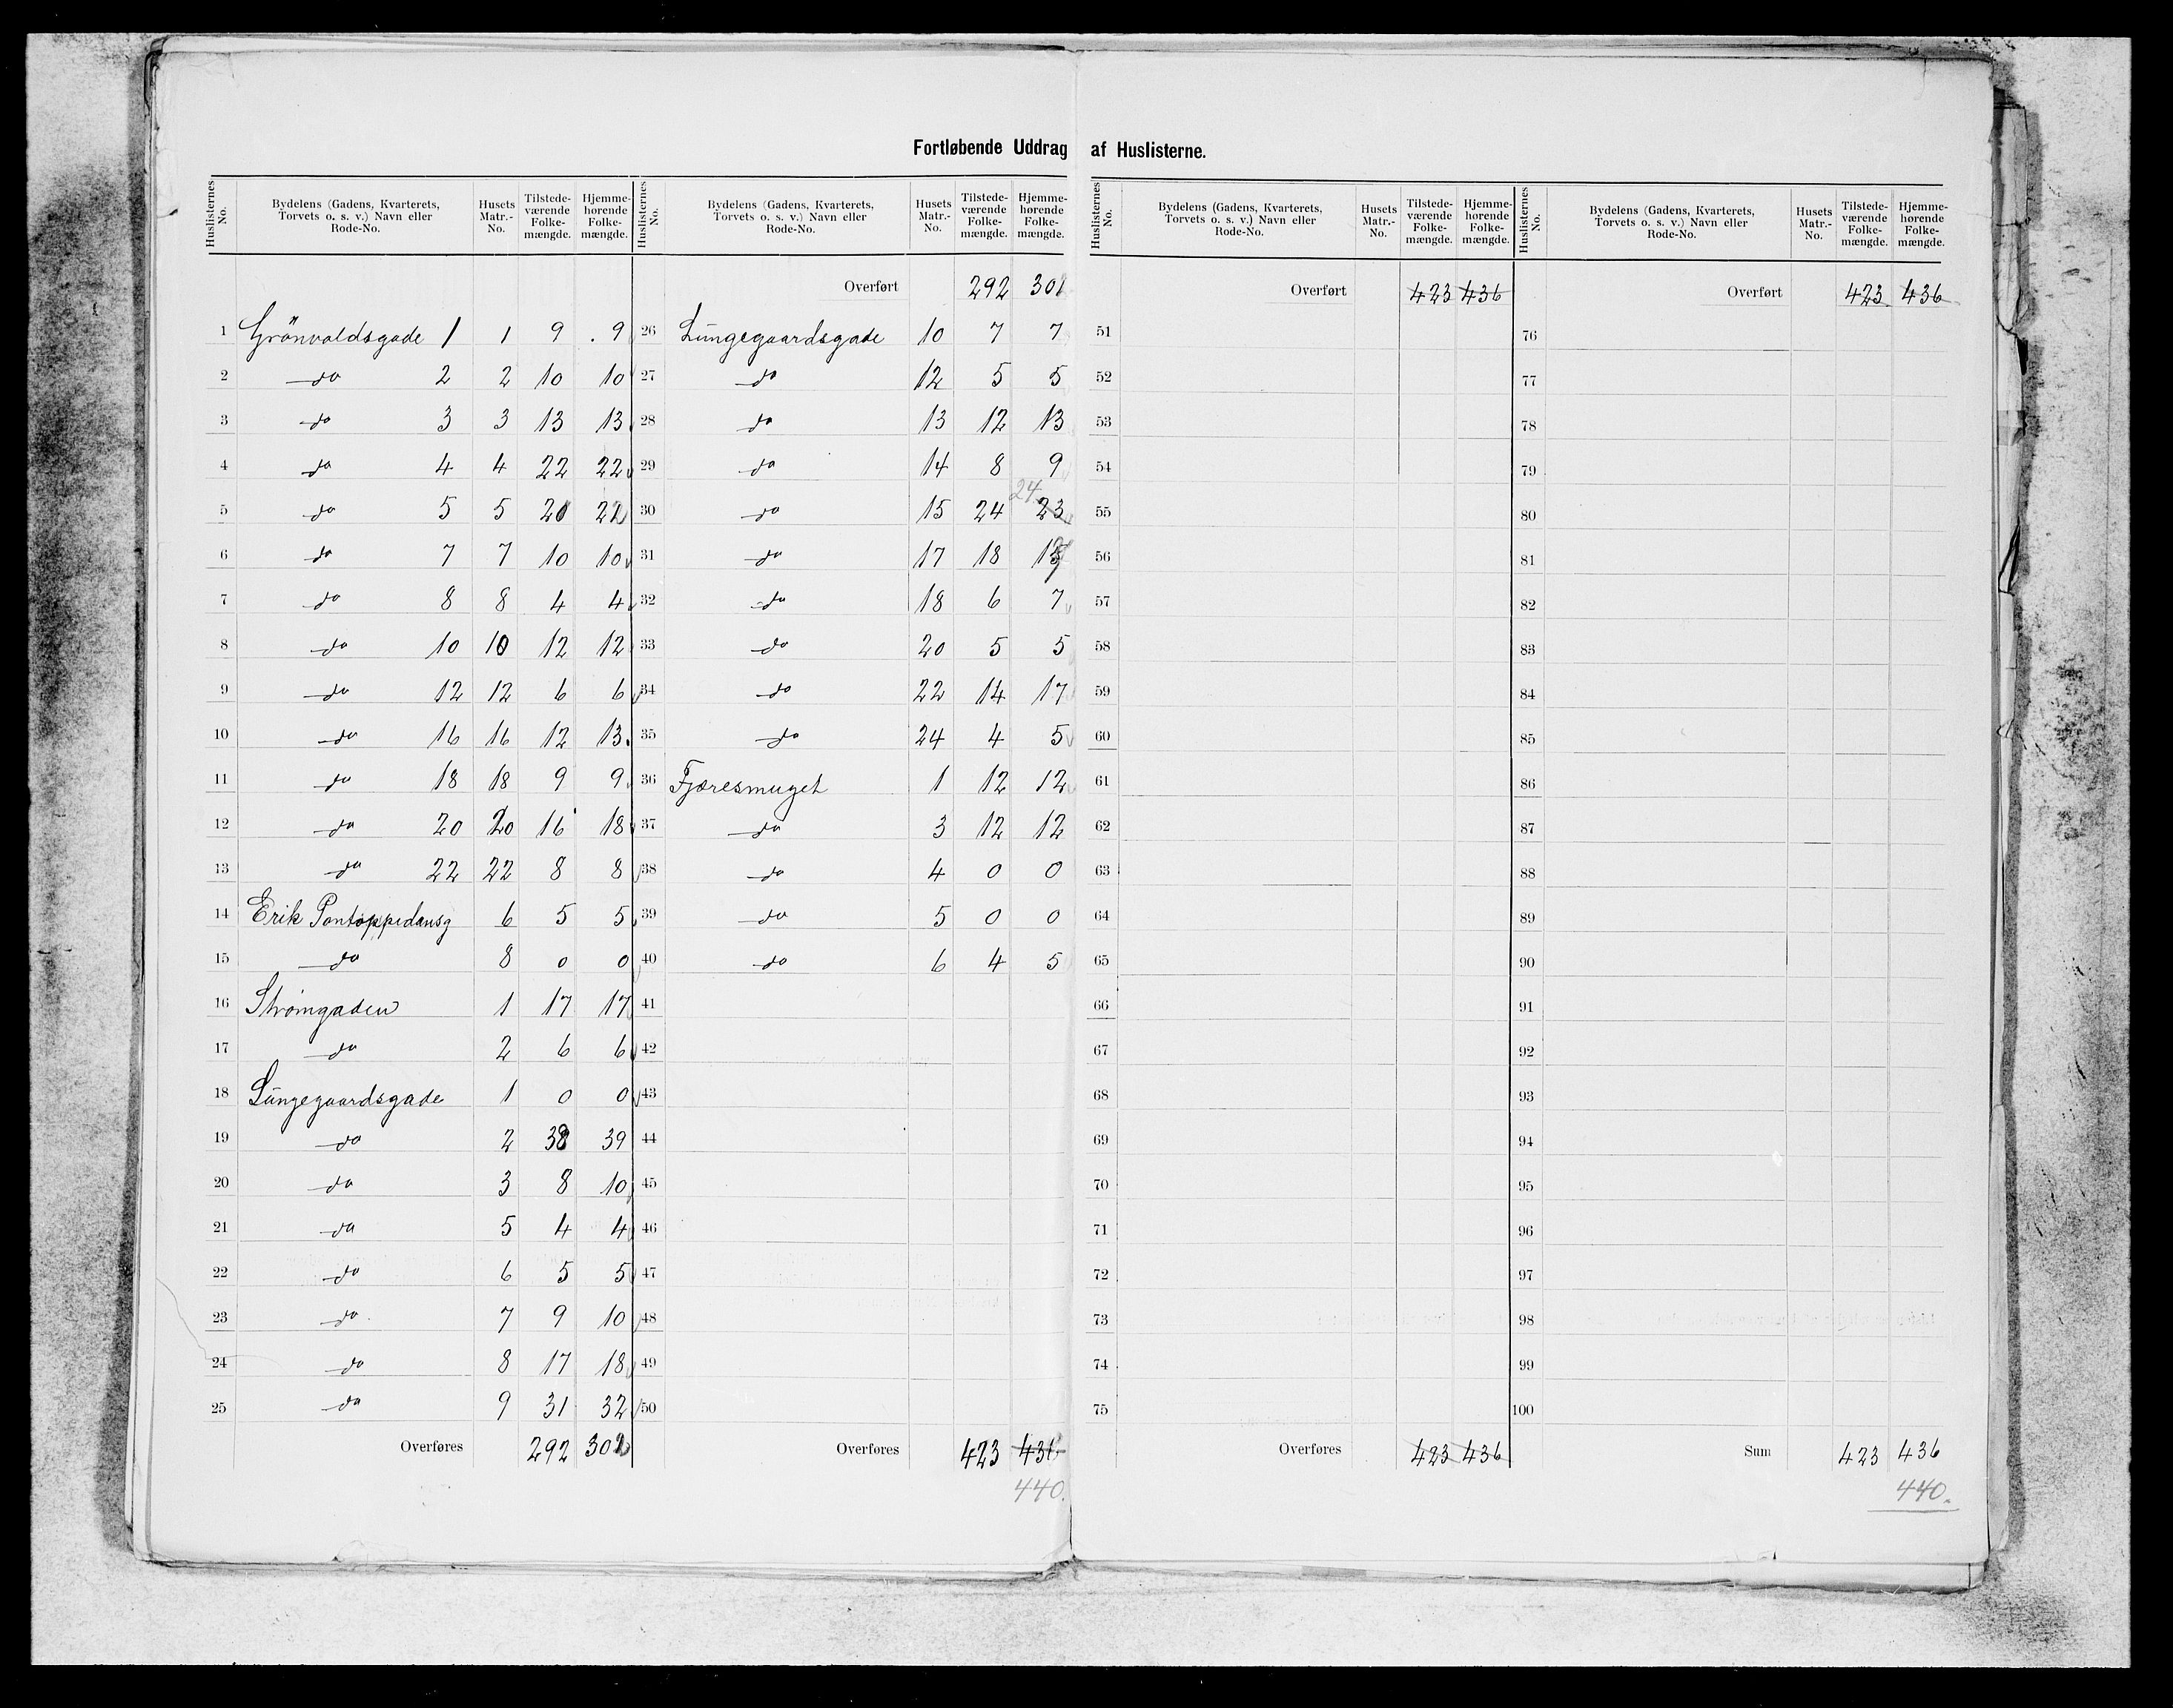 Fortløbende Uddrag af Huslisterne.
Huslisternes No. | Bydelens (Gadens, Kvarterets, Torvets o. s. v.) Navn eller Rode-No. | Husets Matr.-No. | Tilstedeværende Folkemængde. | Hjemmehørende Folkemængde.
1 Grönvoldsgade 1 1 9 9
2 do 2 2 10 10
3 do 3 3 13 13
4 do 4 4 22 22
5 do 5 5 20 22
6 do 7 7 10 10
7 do 8 8 4 4
8 do 10 10 12 12
9 do 12 12 6 6
10 do 16 16 12 13
11 do 18 18 9 9
12 do 20 20 16 18
13 do 22 22 8 8
14 Erik Pontoppidansg 6 5 5
15 do 8 0 0
16 Strömgaden 1 17 17
17 do 2 6 6
18 Lungegaardsgade 1 0 0
19 do 2 38 39
20 do 3 8 10
21 do 5 4 4
22 do 6 5 5
23 do 7 9 10
24 do 8 17 18
25 do 9 31 32
Overføres 292 302
Huslisternes No. | Bydelens (Gadens, Kvarterets, Torvets o. s. v.) Navn eller Rode-No. | Husets Matr.-No. | Tilstedeværende Folkemængde. | Hjemmehørende Folkemængde.
Overført 292 302
26 Lungegaardsgade 10 7 7
27 do 12 5 5
28 do 13 12 13
29 do 14 8 9
24
30 do 15 24 23
31 do 17 18
32 do 18 6 7
33 do 20 5 5
34 do 22 14 17
35 do 24 4 5
36 Fjæresmuget 1 12 12
37 do 3 12 12
38 do 4 0 0
39 do 5 0 0
40 do 6 4 5
41
42
43
44
45
46
47
48
49
50
Overføres 423 436
440.
Huslisternes No. | Bydelens (Gadens, Kvarterets, Torvets o. s. v.) Navn eller Rode-No. | Husets Matr.-No. | Tilstedeværende Folkemængde. | Hjemmehørende Folkemængde.
Overført 423 436
51
52
53
54
55
56
57
58
59
60
61
62
63
64
65
66
67
68
69
70
71
72
73
74
75
Overføres 423 436
Huslisternes No. | Bydelens (Gadens, Kvarterets, Torvets o. s. v.) Navn eller Rode-No. | Husets Matr.-No. | Tilstedeværende Folkemængde. | Hjemmehørende Folkemængde.
Overført 423 436
76
77
78
79
80
81
82
83
84
85
86
87
88
89
90
91
92
93
94
95
96
97
98
99
100
Sum 423 436
440.